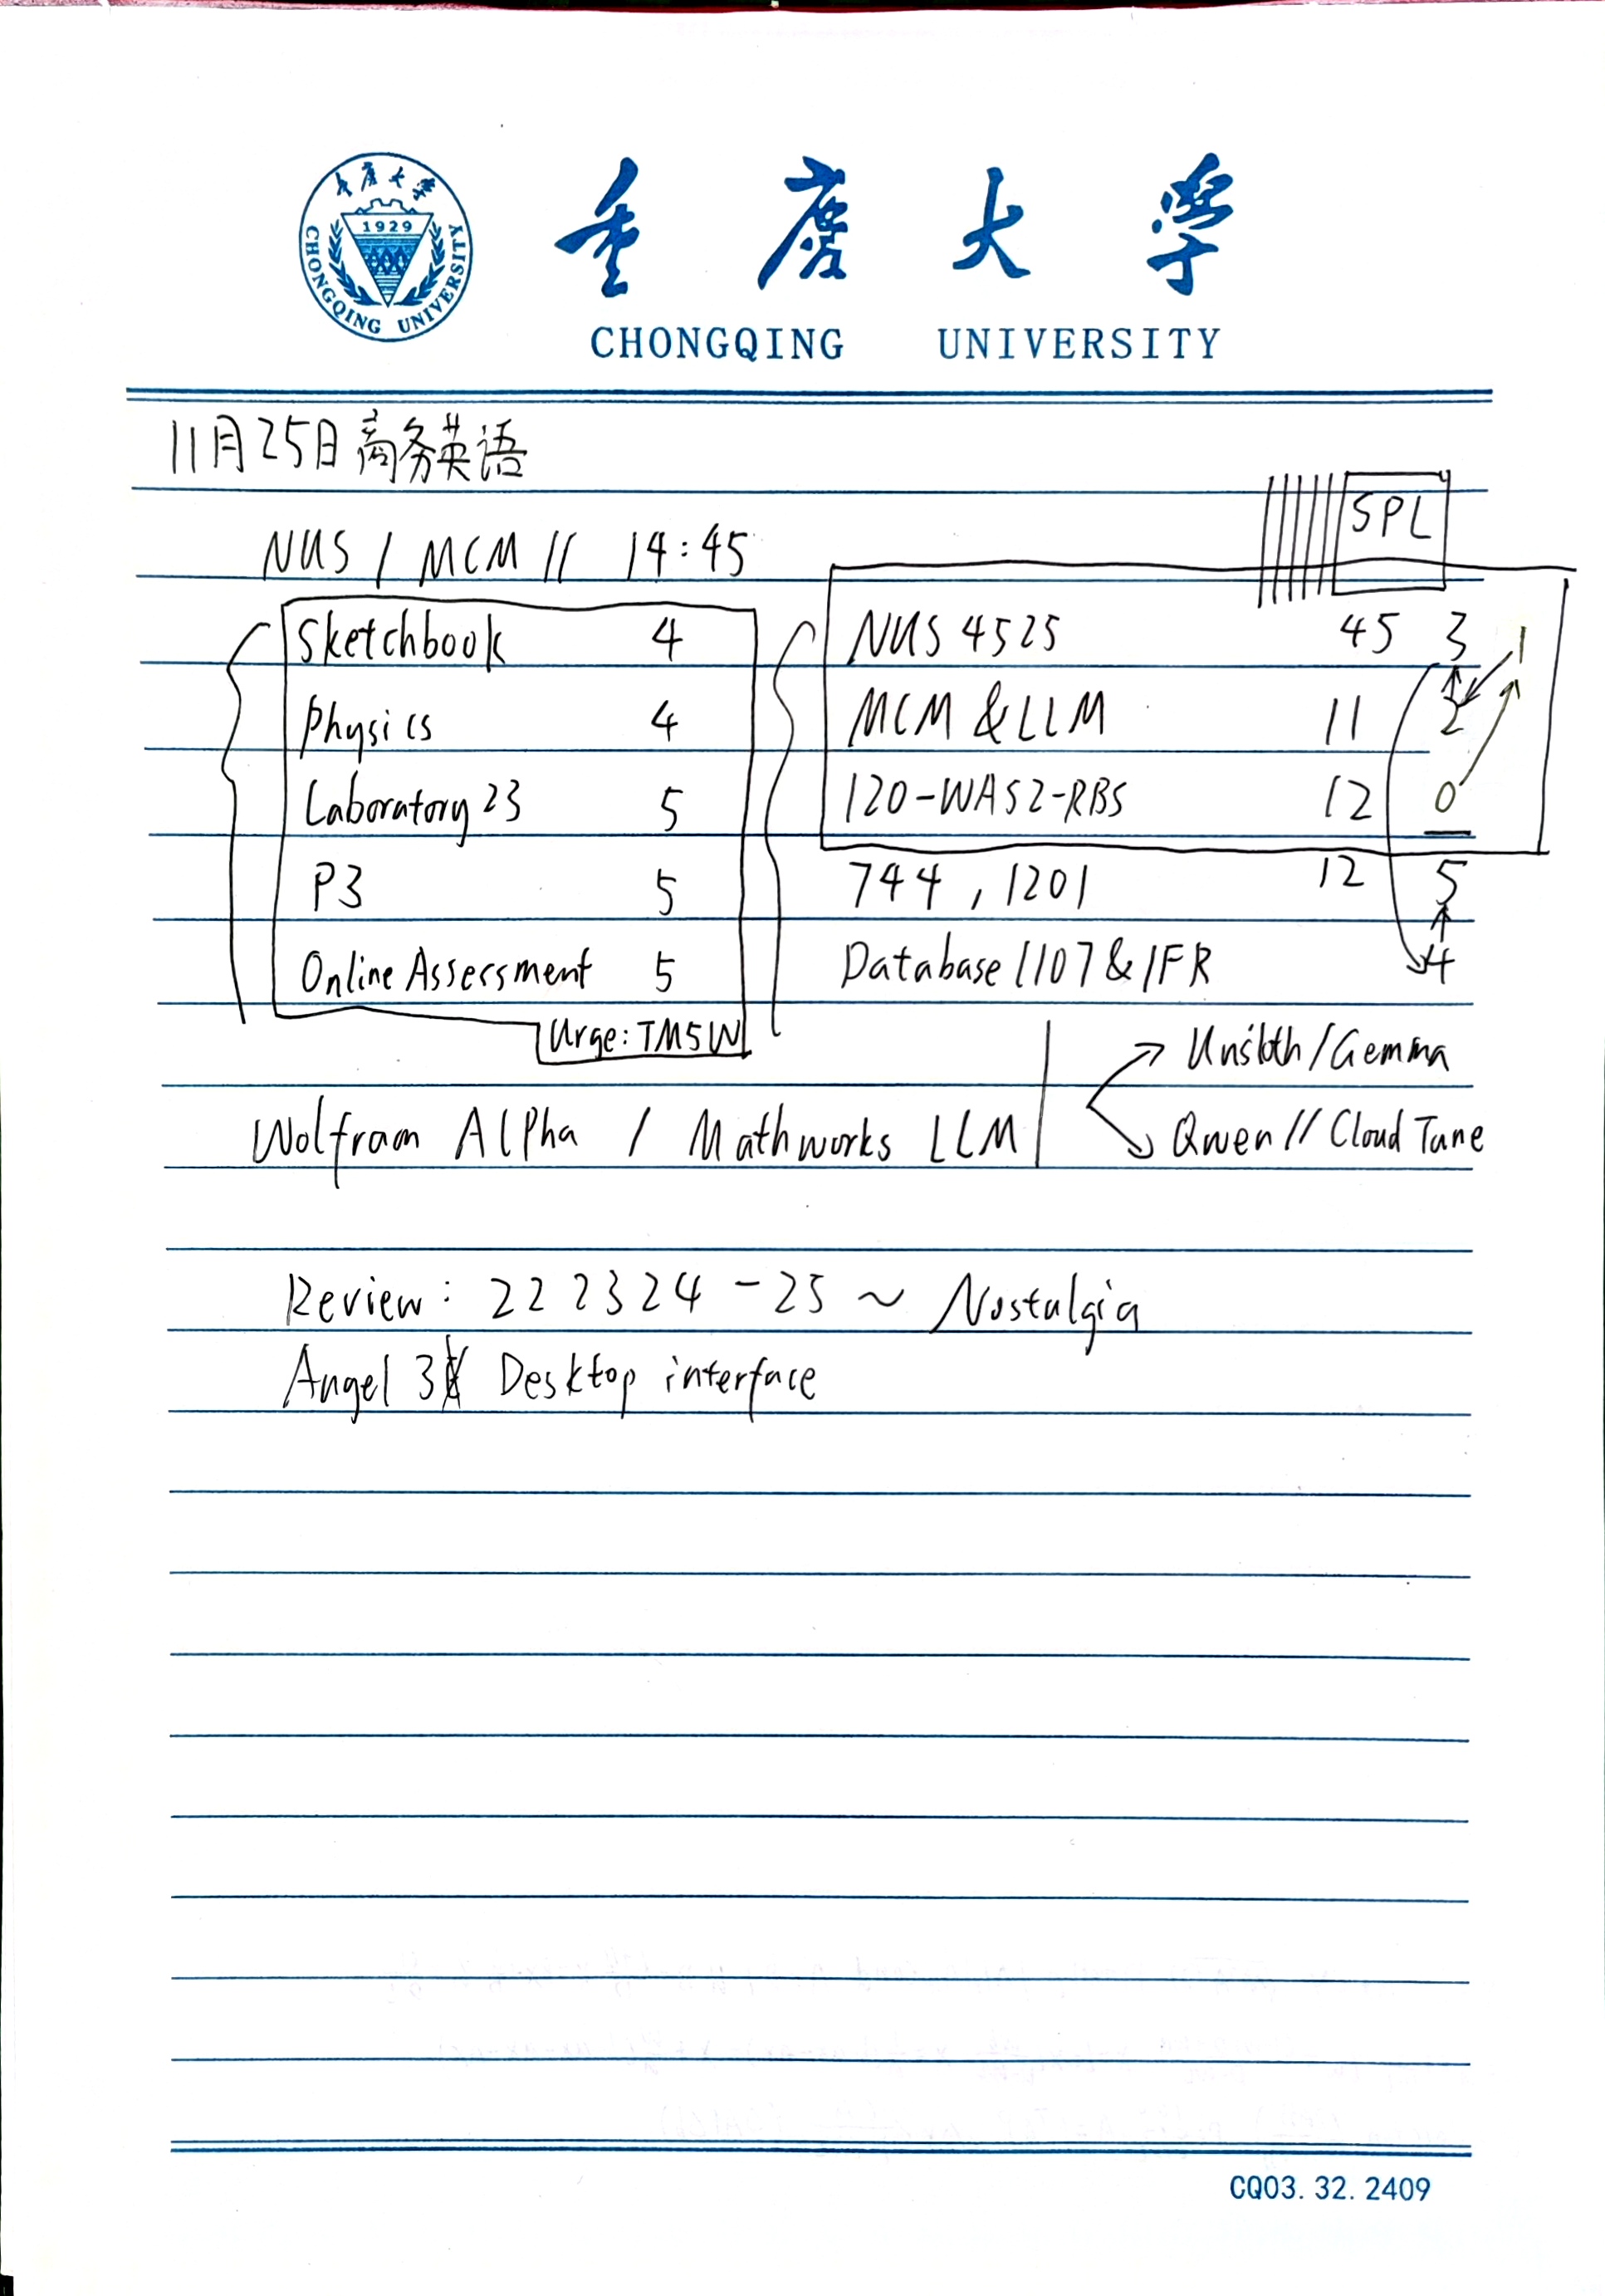 重庆大学
1929
CHONGQING UNIVERSITY
重慶大學
CHONGQING UNIVERSITY
11月25日商务英语
SPL
NUS / MCM // 14:45
Sketchbook 4
Physics 4
Laboratory 23 5
P3 5
Online Assessment 5
Urge: TM5W
NUS 4525 45 3 1
MCM & LLM 11 2
120-WAS2-RBS 12 0
744, 1201 12 5
Database 1107 & IFR 4
Wolfram Alpha / Mathworks LLM
Unsloth/Gemma
Qwen // Cloud Tune
Review: 222324-25 ~ Nostalgia
Angel 3 Desktop interface
CQ03.32.2409